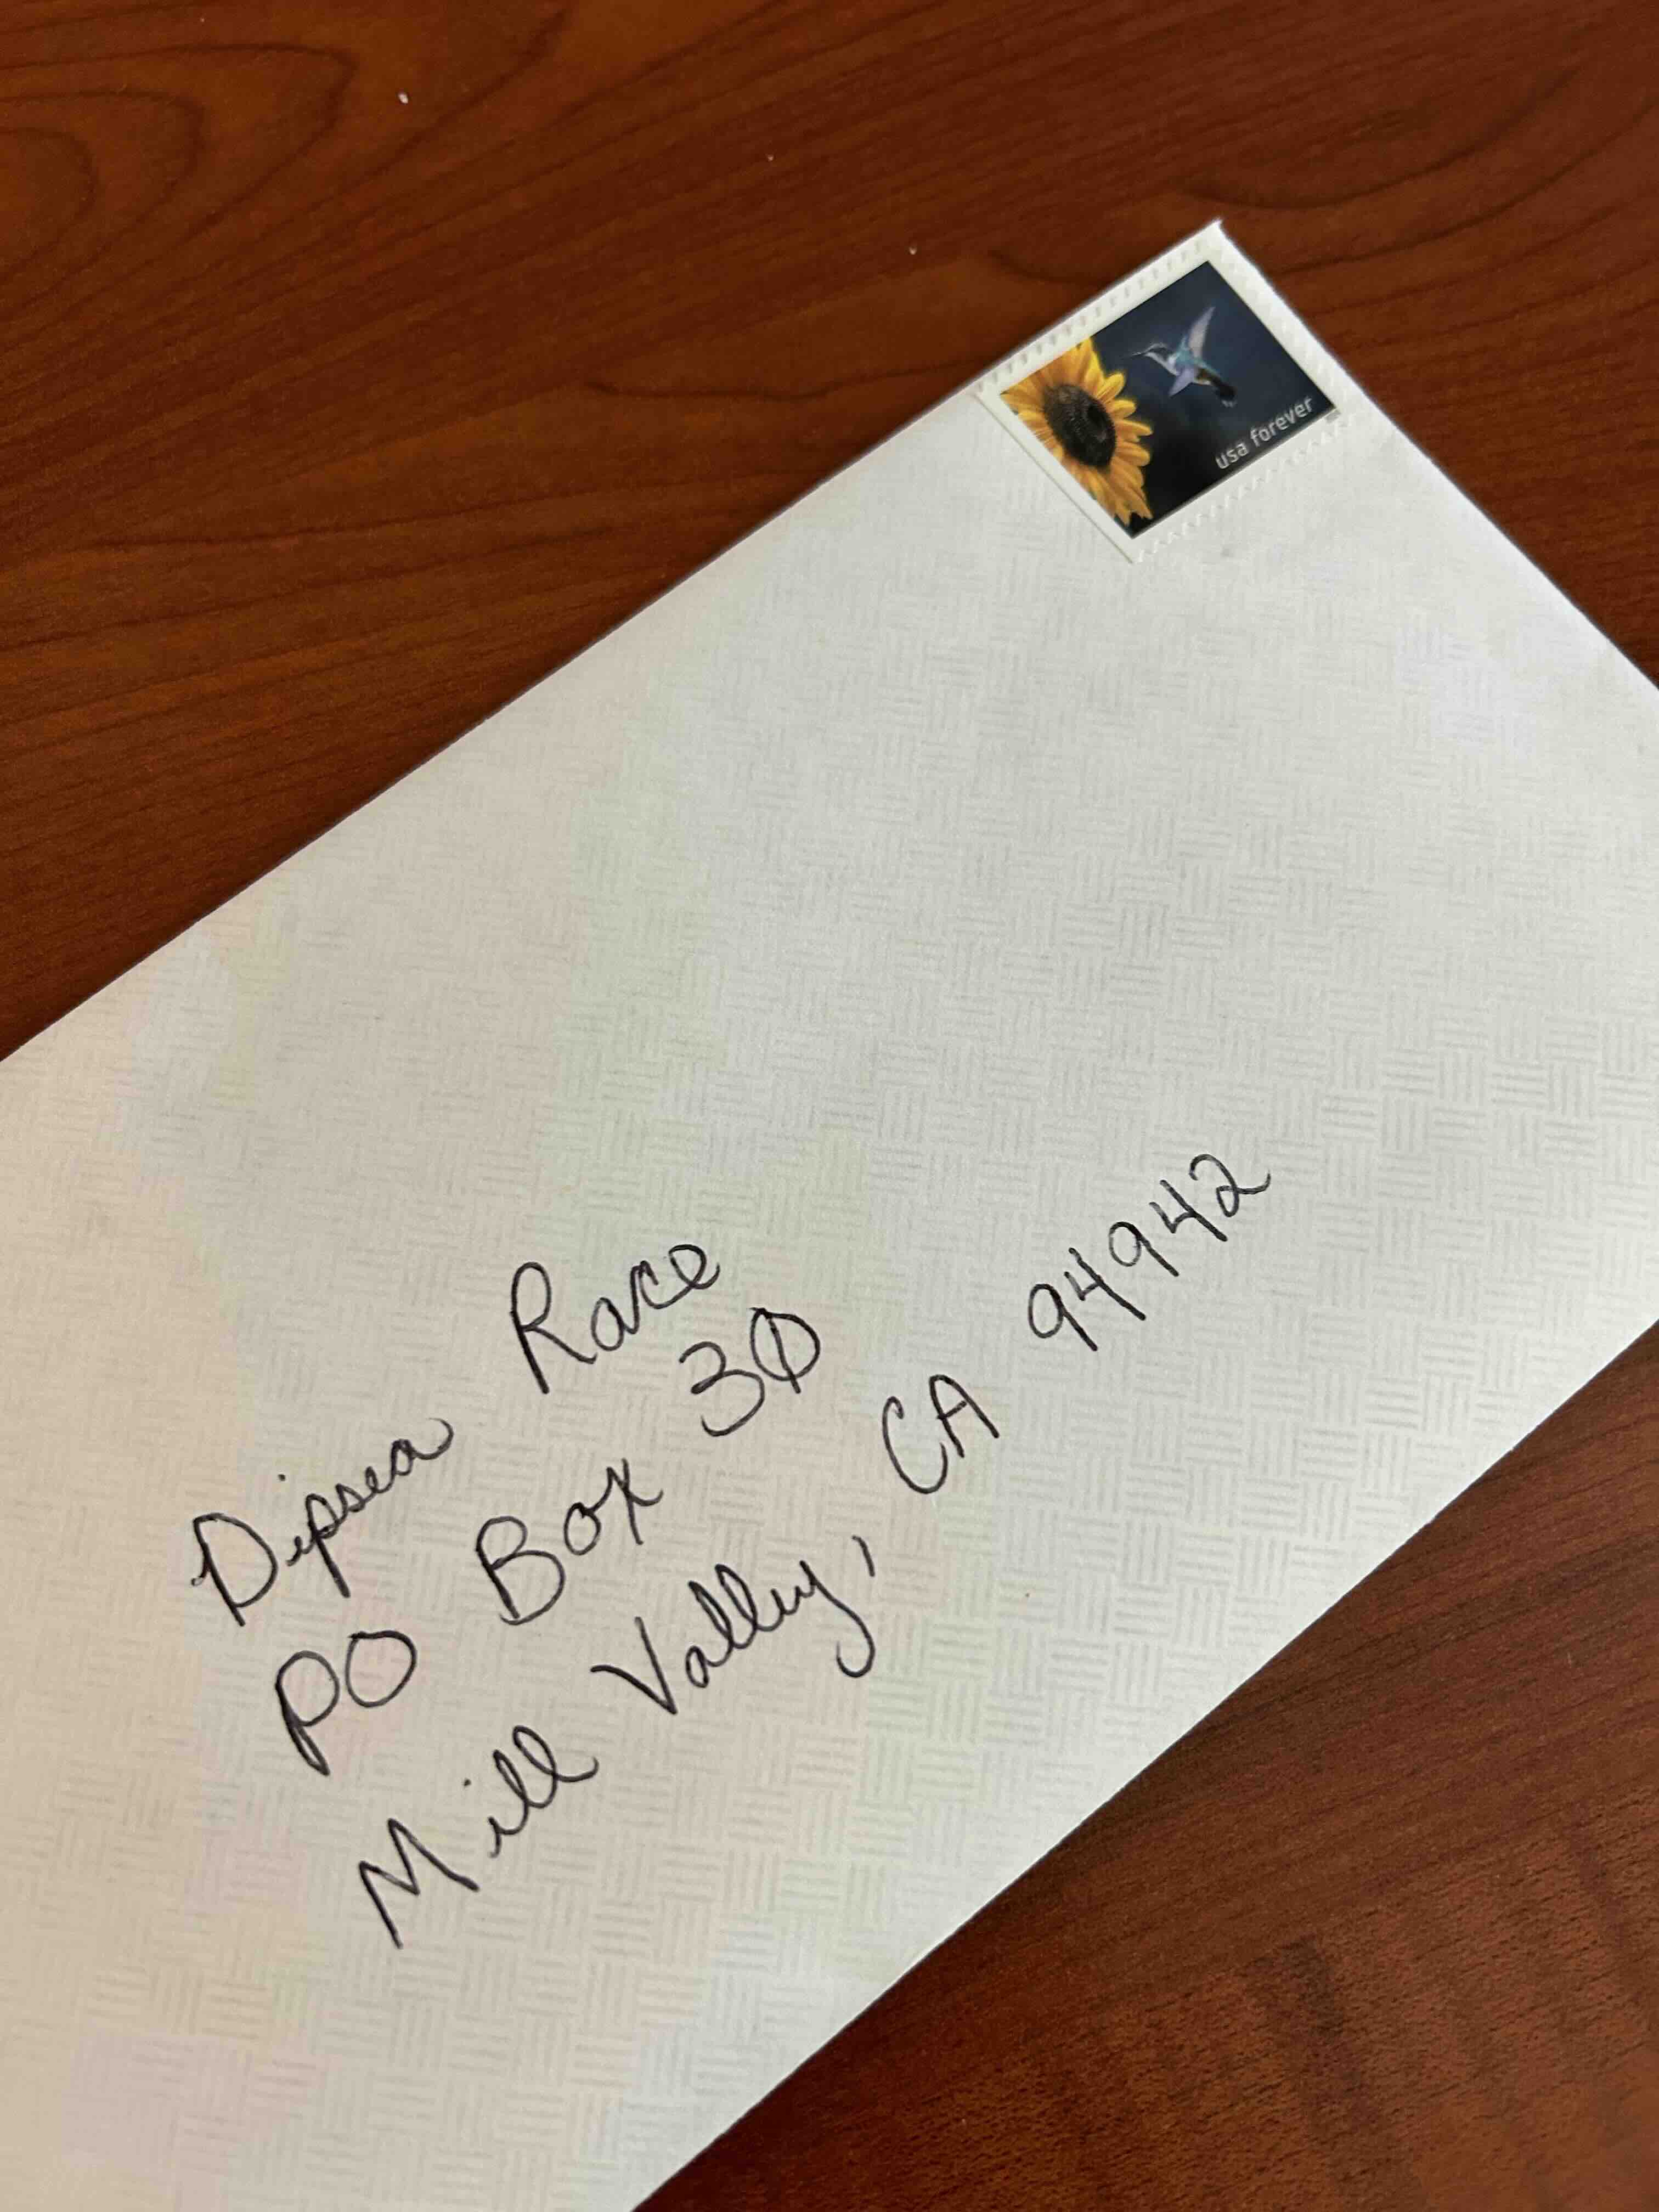 usa forever
Dipsea Race
PO Box 30
Mill Valley, CA 94942